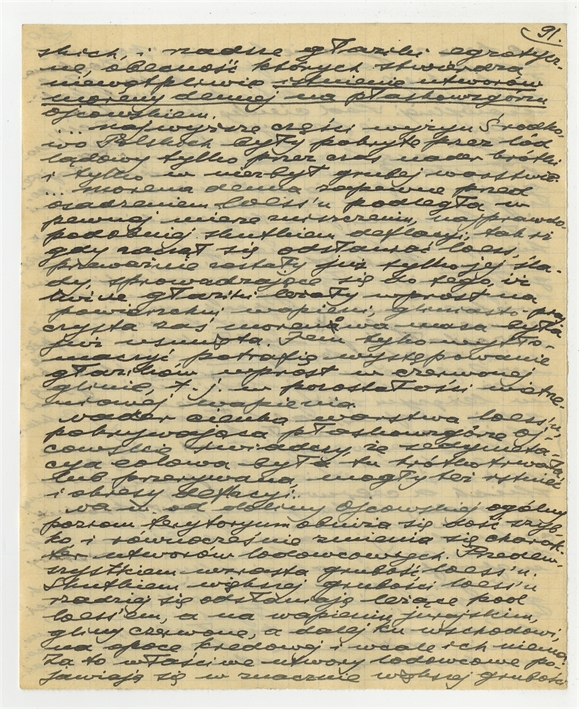 91.
skich, i nadto głaziki egzotycz-
ne, obecność których stwierdza
niewątpliwie istnienie utworów
moreny dennej na płaskowzgórzu
Ojcowskiem.
... najwyższe części wyżyn Środko-
wo Polskich były pokryte przez lód
lądowy tylko przez czas nader krótki
i tylko w niezbyt grubej warstwie.
... morena denna zapewne przed
osadzeniem loess'u podległa w
pewnej mierze zniszczeniu, najprawdo-
podobniej skutkiem deflacji; tak iż
gdy zaczął się odstawać loess,
przeważnie zostały już tylko jej śla-
dy, sprowadzające się do tego, iż
liczne głaziki leżały wprost na
powierzchni wapieni, gliniasto-piasz-
czysta zaś morenowa masa była
już usunięta. Tem tylko wytło-
maczyć potrafię występowanie
głazików wprost w czerwonej
glinie, t. j. w pozostałości wietrze-
niowej wapienia.
nader cienka warstwa loess'u,
pokrywająca płaskowzgórze Oj-
cowskie świadczy, że sedymenta-
cja eolowa była tu krótkotrwała
lub przerywana, mogły też istnieć
i okresy deflacji...
... od doliny Ojcowskiej ogólny
poziom terytoryum obniża się dość szyb-
ko i równocześnie zmienia się charak-
ter utworów lodowcowych. Przedew-
szystkiem wzrasta grubość loess'u.
Skutkiem większej grubości loess'u
rzadziej się odsłaniają leżące pod
loess'em, a na wapieniu jurajskim,
gliny czerwone, a dalej ku wschodowi,
na opoce kredowej i wcale ich niema,
za to właściwe utwory lodowcowe po-
jawiają się w znacznie większej grubości